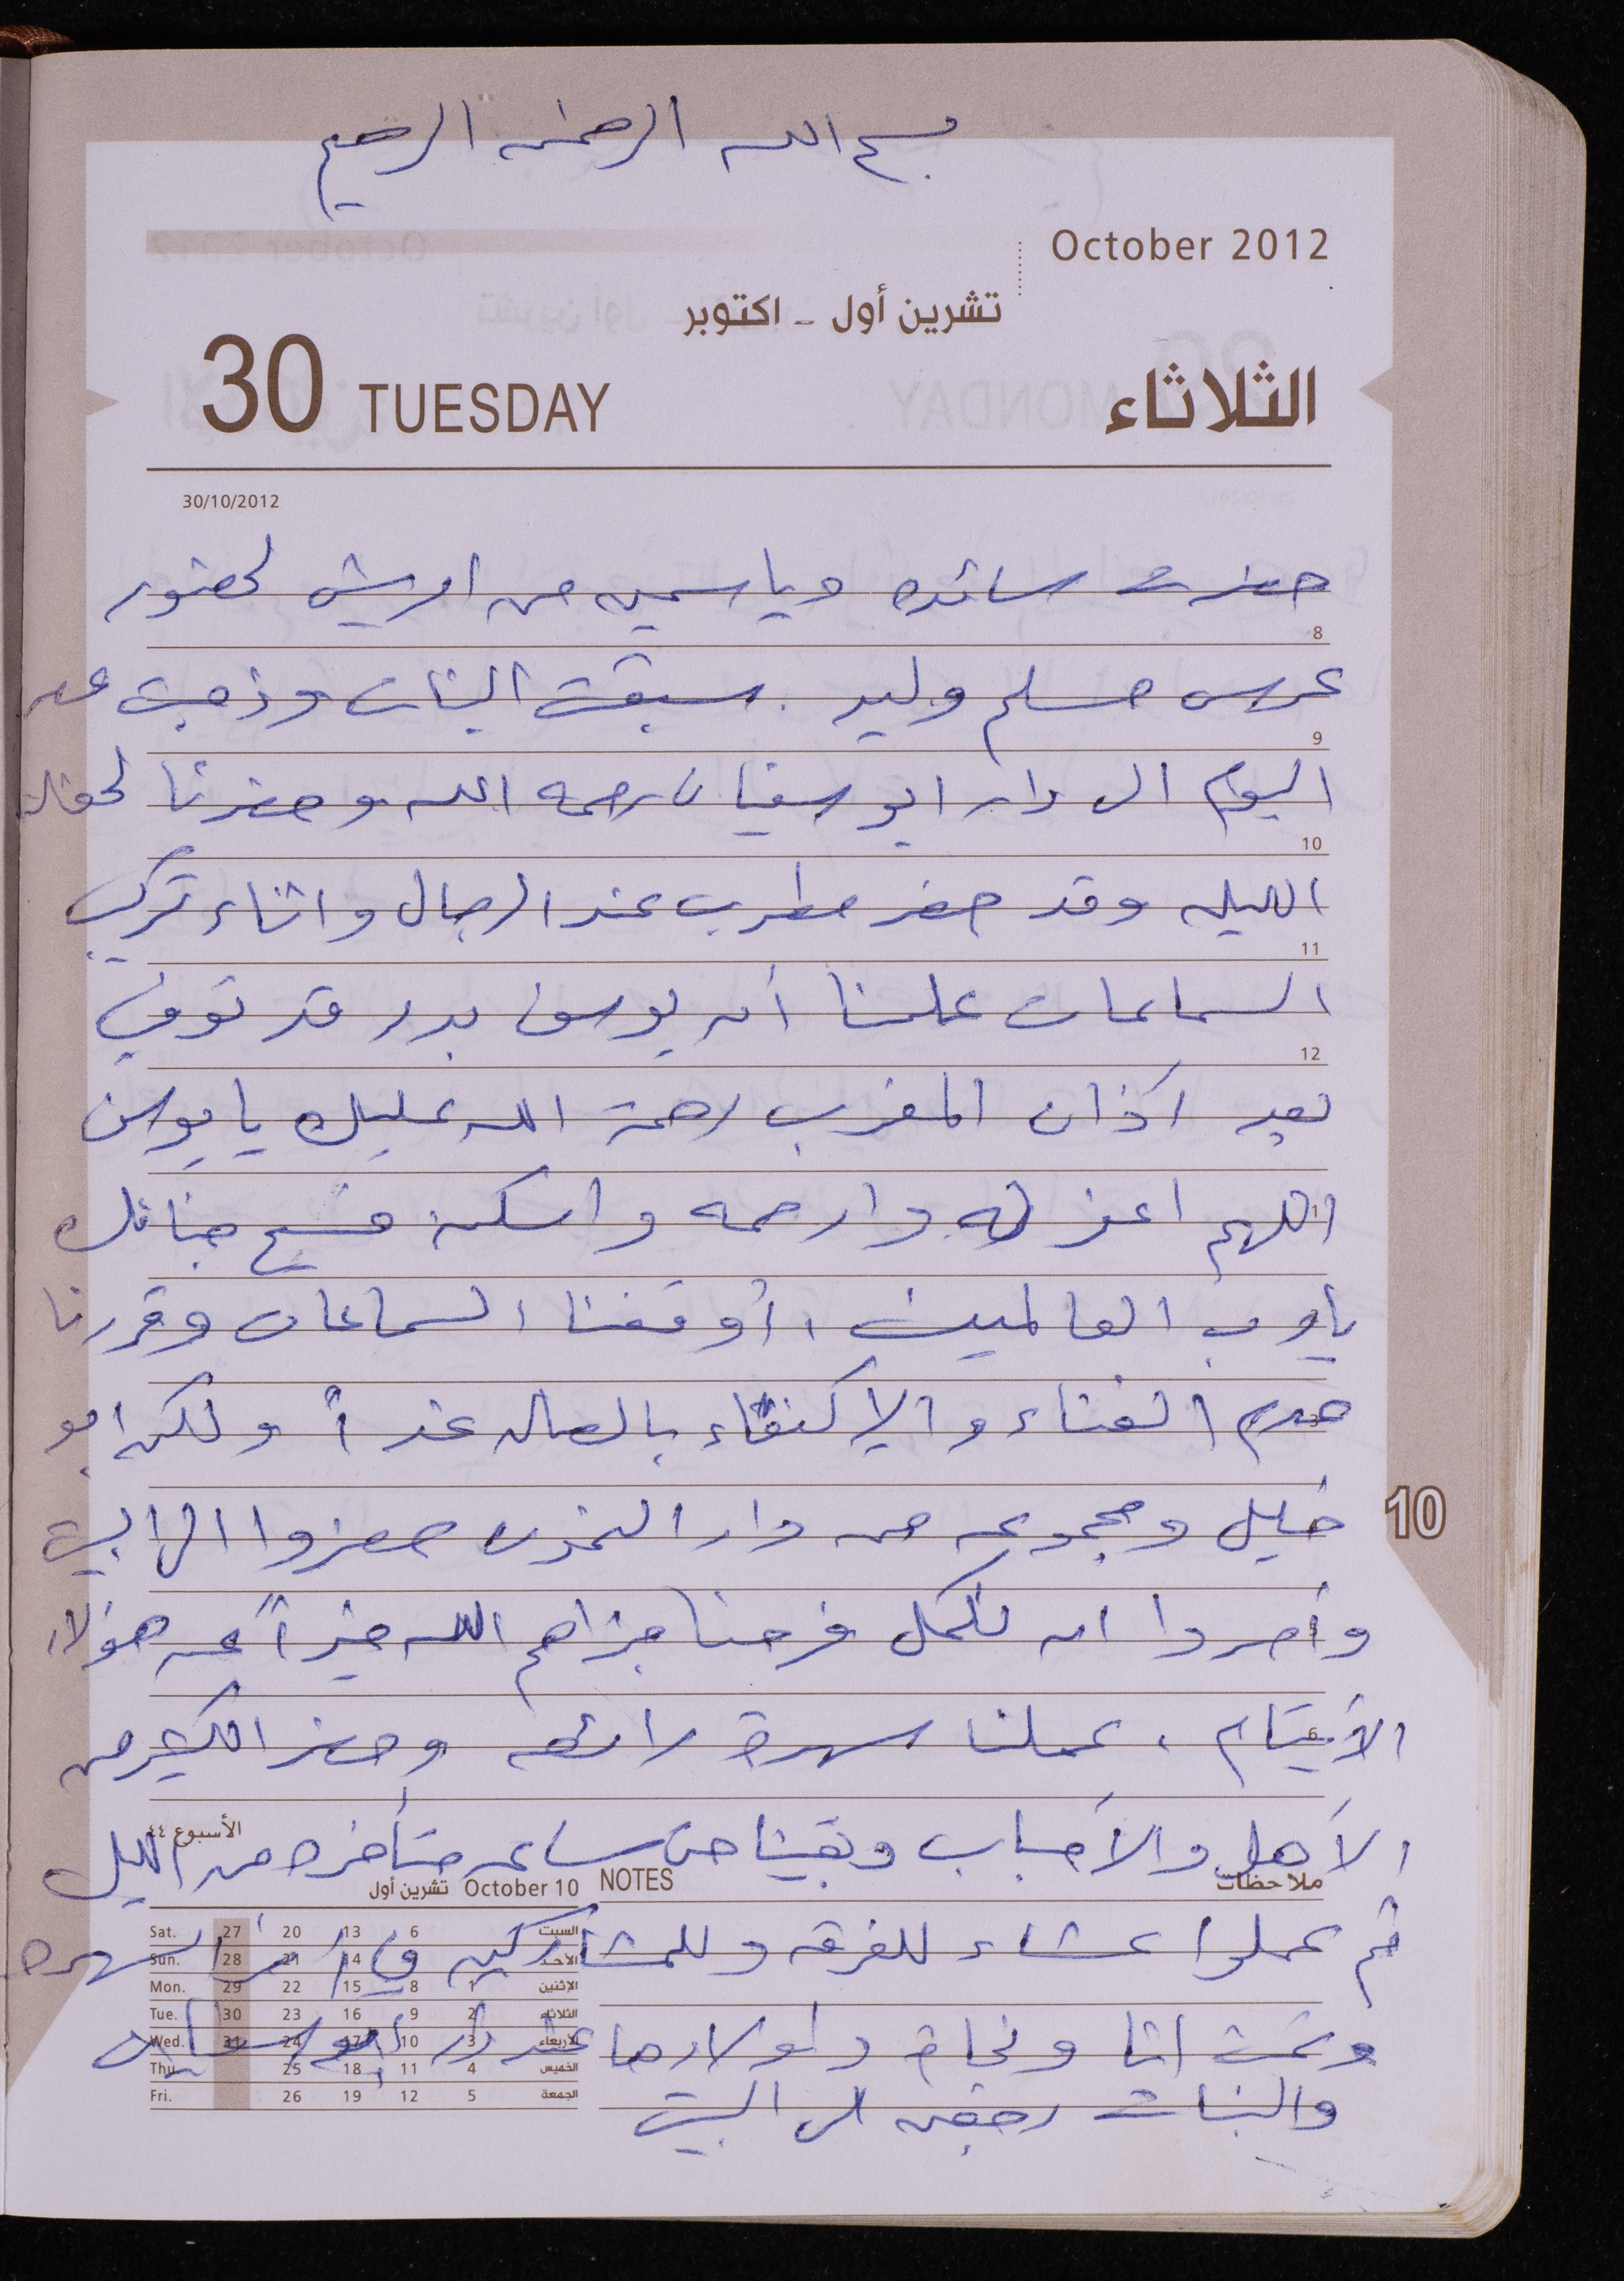 بسم الله الرحمن الرحيم
October 2012
تشرين أول - اكتوبر
30 TUESDAY الثلاثاء
30/10/2012
حضرت سائده وياسمين من اريش لحضور
8
عرس مسلم وليد . سبقت البنات وذهبت عصر
9
اليوم الى دار ابو سفيان رحمه الله وحضرنا لحفلة
10
الليله وقد حضر مطرب عند الرجال واثناء تركيب
11
السماعات علمنا أن يوسف بدر قد توفي
12
بعد آذان المغرب رحمة الله عليك يا يوسف
اللهم اغفر له وارحمه واسكنه فسيح جناتك
يا رب العالمين ، أوقفنا السماعات وقررنا
عدم الغناء والإكتفاء بالصاله غداً ولكن ابو
خليل ومجموعه من دار حضروا الى البيت
10
وأصروا ان نكمل فرحنا جزاهم الله خيراً عن هؤلاء
الأيتام ، عملنا سهرة رائعه وحضر الكثير من
6
الأهل والأحباب وبقينا حتى ساعه متأخره من الليل
الأسبوع ٤٤
ملاحظات NOTES
October 10 تشرين أول
ثم عملوا عشاء للفرقه وللمشاركين في السهره
ونمت انا ونجاة واولادها عند دار ابو سفيان
والبنات رجعن الى البيت
Sat. 27 20 13 6 السبت
Sun. 28 21 14 7 الأحد
Mon. 29 22 15 8 1 الإثنين
Tue. 30 23 16 9 2 الثلاثاء
Wed. 31 24 17 10 3 الأربعاء
Thu. 25 18 11 4 الخميس
Fri. 26 19 12 5 الجمعة